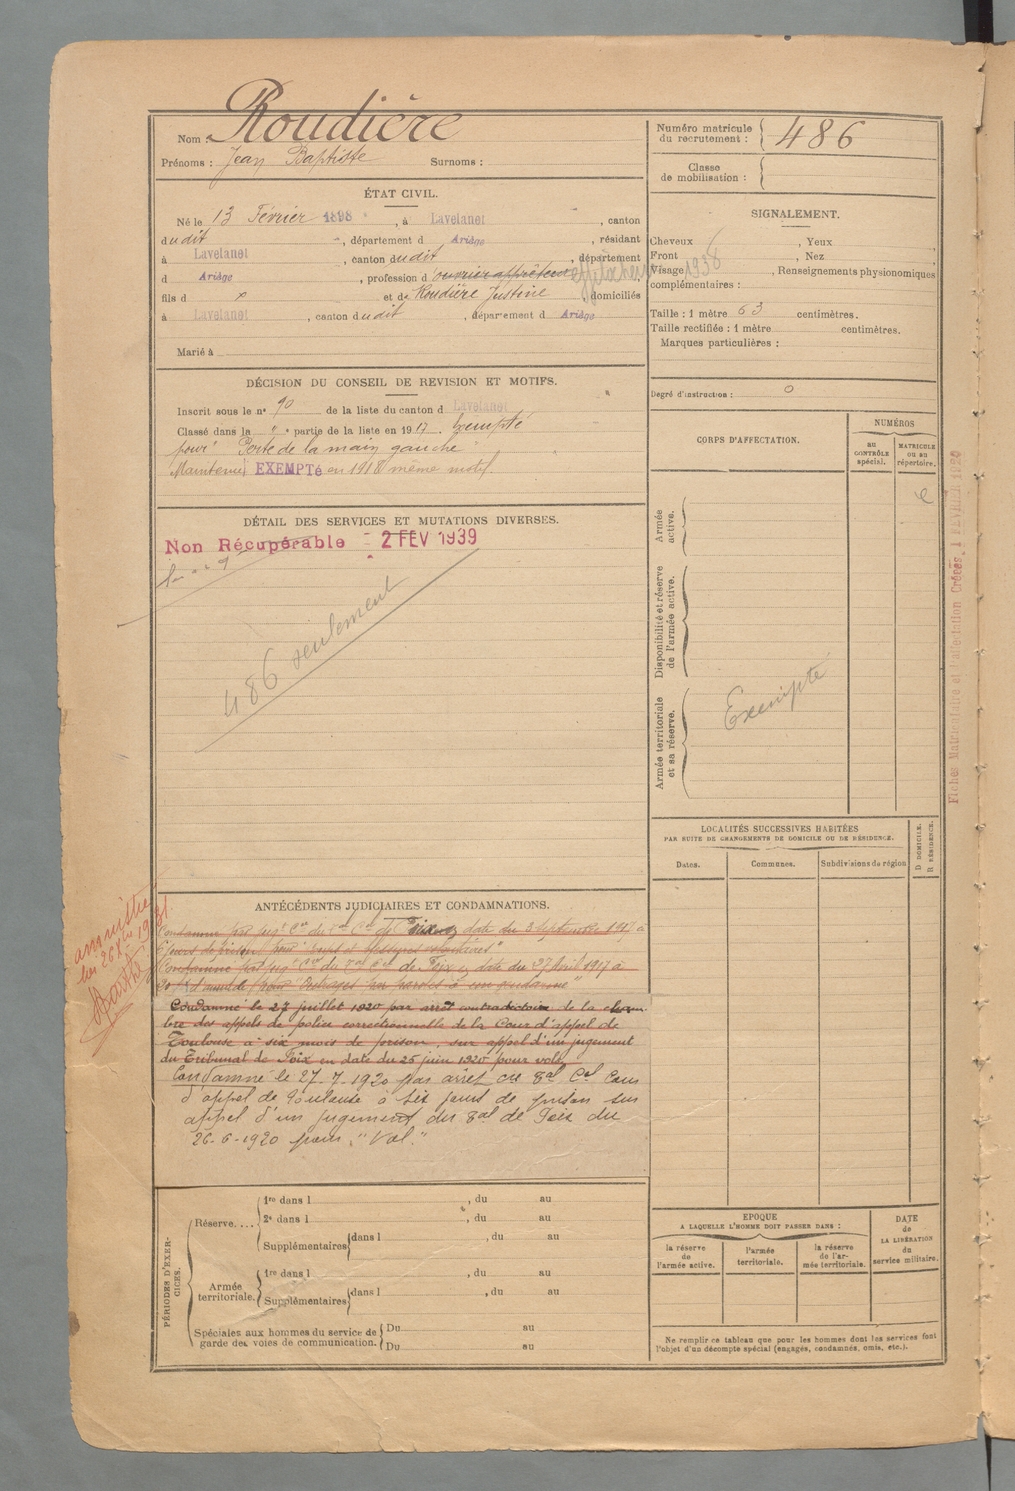 Nom : Roudière
Prénoms : Jean Baptiste Surnoms :
ÉTAT CIVIL.
Né le 13 Février 1898, à Lavelanet, canton
dudit, département d Ariège, résidant
à Lavelanet, canton dudit, département
d Ariège, profession d'ouvrier apprêteur
fils d x et de Roudière Justine, domiciliés
à Lavelanet, canton dudit, département d Ariège
Marié à
DÉCISION DU CONSEIL DE REVISION ET MOTIFS.
Inscrit sous le n° 90 de la liste du canton d Lavelanet
Classé dans la " partie de la liste en 1917. Exempté
pour Perte de la main gauche
Maintenu EXEMPTé en 1918 même motif.
DÉTAIL DES SERVICES ET MUTATIONS DIVERSES.
Non Récupérable - 2 FEV 1939
486 seulement
ANTÉCÉDENTS JUDICIAIRES ET CONDAMNATIONS.
amnistie
loi 26 Xbre 1931
Condamné par jug. Cel du Foix en date du 3 septembre 1917 à
jours de prison pour "coups et blessures volontaires"
Condamné par jug. Cel du de Foix en date du 27 Avril 1917 à
d'amende pour "Outrages par paroles à un gendarme"
Condamné le 27 juillet 1920 par arrêt contradictoire de la cham-
bre des appels de police correctionnelle de la Cour d'appel de
Toulouse à six mois de prison, sur appel d'un jugement
du Tribunal de Foix en date du 25 juin 1920 pour vol.
Condamné le 27-7-1920 par arrêt Cour
d'appel de Toulouse à six jours de prison sur
appel d'un jugement du Bal de Foix du
26-6-1920 pour "Vol."
PÉRIODES D'EXER-
CICES.
Réserve....
1re dans l , du au
2e dans l , du au
Supplémentaires dans l , du au
Armée
territoriale.
1re dans l , du au
Supplémentaires dans l , du au
Spéciales aux hommes du service de
garde des voies de communication.
Du au
Du au
Numéro matricule
du recrutement : 486
Classe
de mobilisation :
SIGNALEMENT.
Cheveux , Yeux
Front , Nez
Visage , Renseignements physionomiques
1938
complémentaires :
Taille : 1 mètre 63 centimètres.
Taille rectifiée : 1 mètre centimètres.
Marques particulières :
Degré d'instruction : 0
CORPS D'AFFECTATION.
NUMÉROS
au
CONTRÔLE
spécial.
MATRICULE
ou au
répertoire.
Armée
active.
Disponibilité et réserve
de l'armée active.
Armée territoriale
et sa réserve.
Exempté
LOCALITÉS SUCCESSIVES HABITÉES
PAR SUITE DE CHANGEMENTS DE DOMICILE OU DE RÉSIDENCE.
Dates.
Communes.
Subdivisions de région
D DOMICILE.
R RÉSIDENCE.
EPOQUE
A LAQUELLE L'HOMME DOIT PASSER DANS :
la réserve
de
l'armée active.
l'armée
territoriale.
la réserve
de l'ar-
mée territoriale.
DATE
de
LA LIBÉRATION
du
service militaire.
Ne remplir ce tableau que pour les hommes dont les services font
l'objet d'un décompte spécial (engagés, condamnés, omis, etc.).
Fiches Matriculaire et d'affectation Créées.